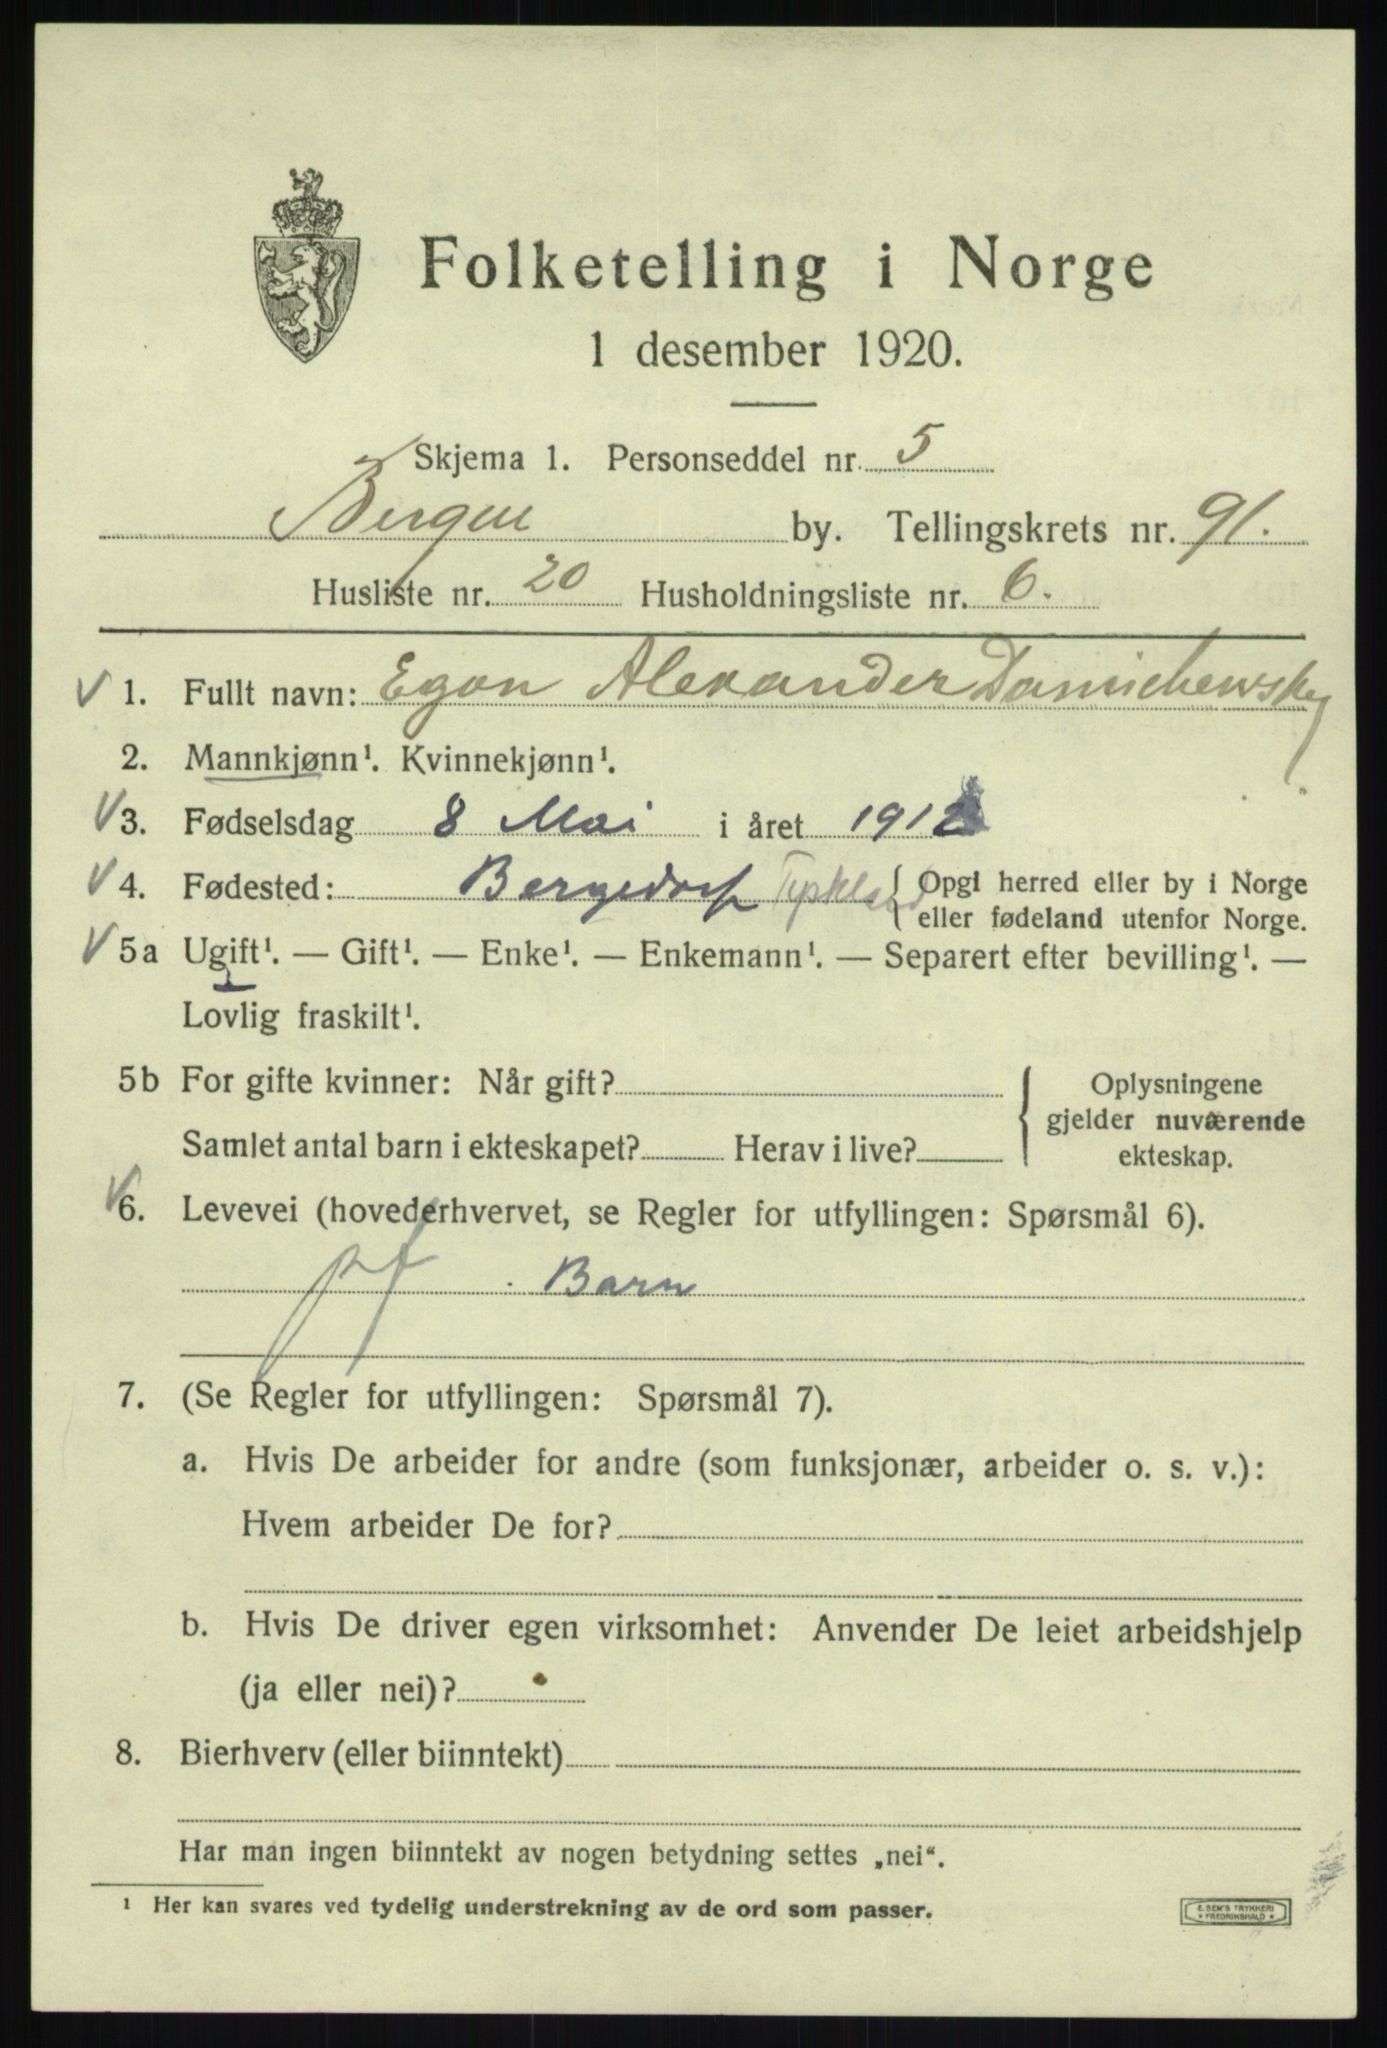 Folketelling i Norge
1 desember 1920.
Skjema 1. Personseddel nr. 5
Bergen by. Tellingskrets nr. 91.
Husliste nr. 20 Husholdningsliste nr. 6.
1. Fullt navn: Egon Alexander Danichewsky
2. Mannkjønn¹. Kvinnekjønn¹.
3. Fødselsdag 8 Mai i året 1912
4. Fødested: Bergedorf Tyskland { Opgi herred eller by i Norge
eller fødeland utenfor Norge.
5a Ugift¹. — Gift¹. — Enke¹. — Enkemann¹. — Separert efter bevilling¹. —
Lovlig fraskilt¹.
5b For gifte kvinner: Når gift? { Oplysningene
gjelder nuværende
Samlet antal barn i ekteskapet? Herav i live?
ekteskap.
6. Levevei (hovederhvervet, se Regler for utfyllingen: Spørsmål 6).
Barn
7. (Se Regler for utfyllingen: Spørsmål 7).
a. Hvis De arbeider for andre (som funksjonær, arbeider o. s. v.):
Hvem arbeider De for?
b. Hvis De driver egen virksomhet: Anvender De leiet arbeidshjelp
(ja eller nei)?
8. Bierhverv (eller biinntekt)
Har man ingen biinntekt av nogen betydning settes „nei“.
¹ Her kan svares ved tydelig understrekning av de ord som passer.
E. SEM'S TRYKKERI
* FREDRIKSHALD *